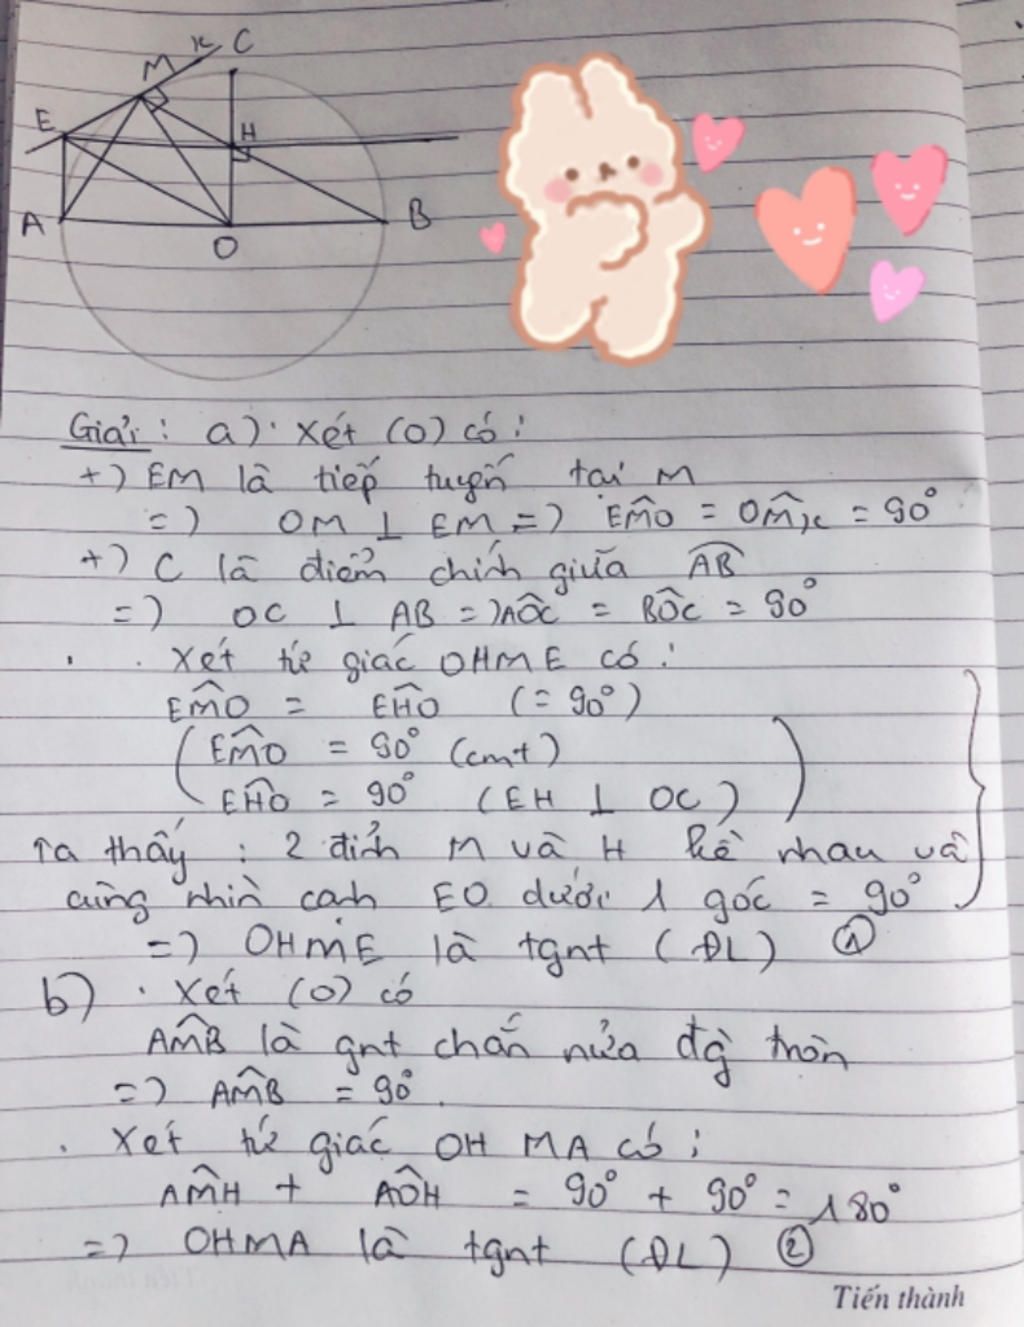 x C
M
E
H
A
O
B
Giải: a) · Xét (O) có:
+) EM là tiếp tuyến tại M
=) OM ⊥ EM =) EM̂O = OM̂x = 90°
+) C là điểm chính giữa AB
=) OC ⊥ AB =) AÔC = BÔC = 90°
· Xét tứ giác OHME có:
EM̂O = EĤO (= 90°)
(EM̂O = 90° (cmt)
EĤO = 90° (EH ⊥ OC))
Ta thấy: 2 đỉnh M và H kề nhau và
cùng nhìn cạnh EO dưới 1 góc = 90°
=) OHME là tgnt (ĐL) ①
b) · Xét (O) có
AM̂B là gnt chắn nửa đg tròn
=) AM̂B = 90°.
· Xét tứ giác OHMA có:
AM̂H + AÔH = 90° + 90° = 180°
=) OHMA là tgnt (ĐL) ②
Tiến thành